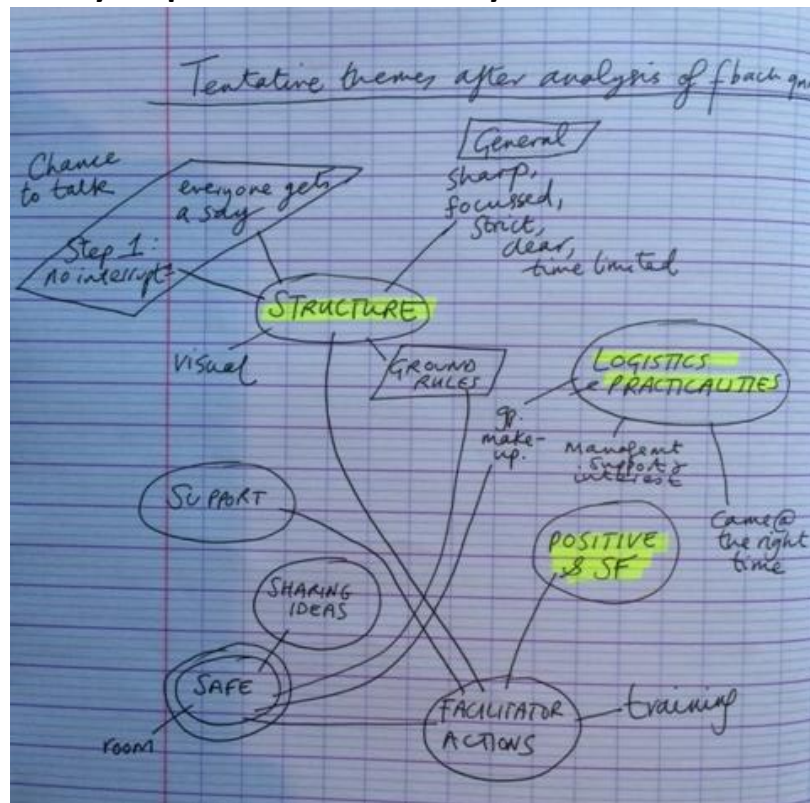 Tentative themes after analysis of fback
Chance
to talk
everyone gets
a say
Step 1:
no interrupt
General
sharp,
focussed,
strict,
clear,
time limited
STRUCTURE
visual
GROUND
RULES
LOGISTICS
& PRACTICALITIES
gp.
make-
up.
Managemt
support &
interest
came @
the right
time
SUPPORT
POSITIVE
& SF
SHARING
IDEAS
SAFE
room
FACILITATOR
ACTIONS
training